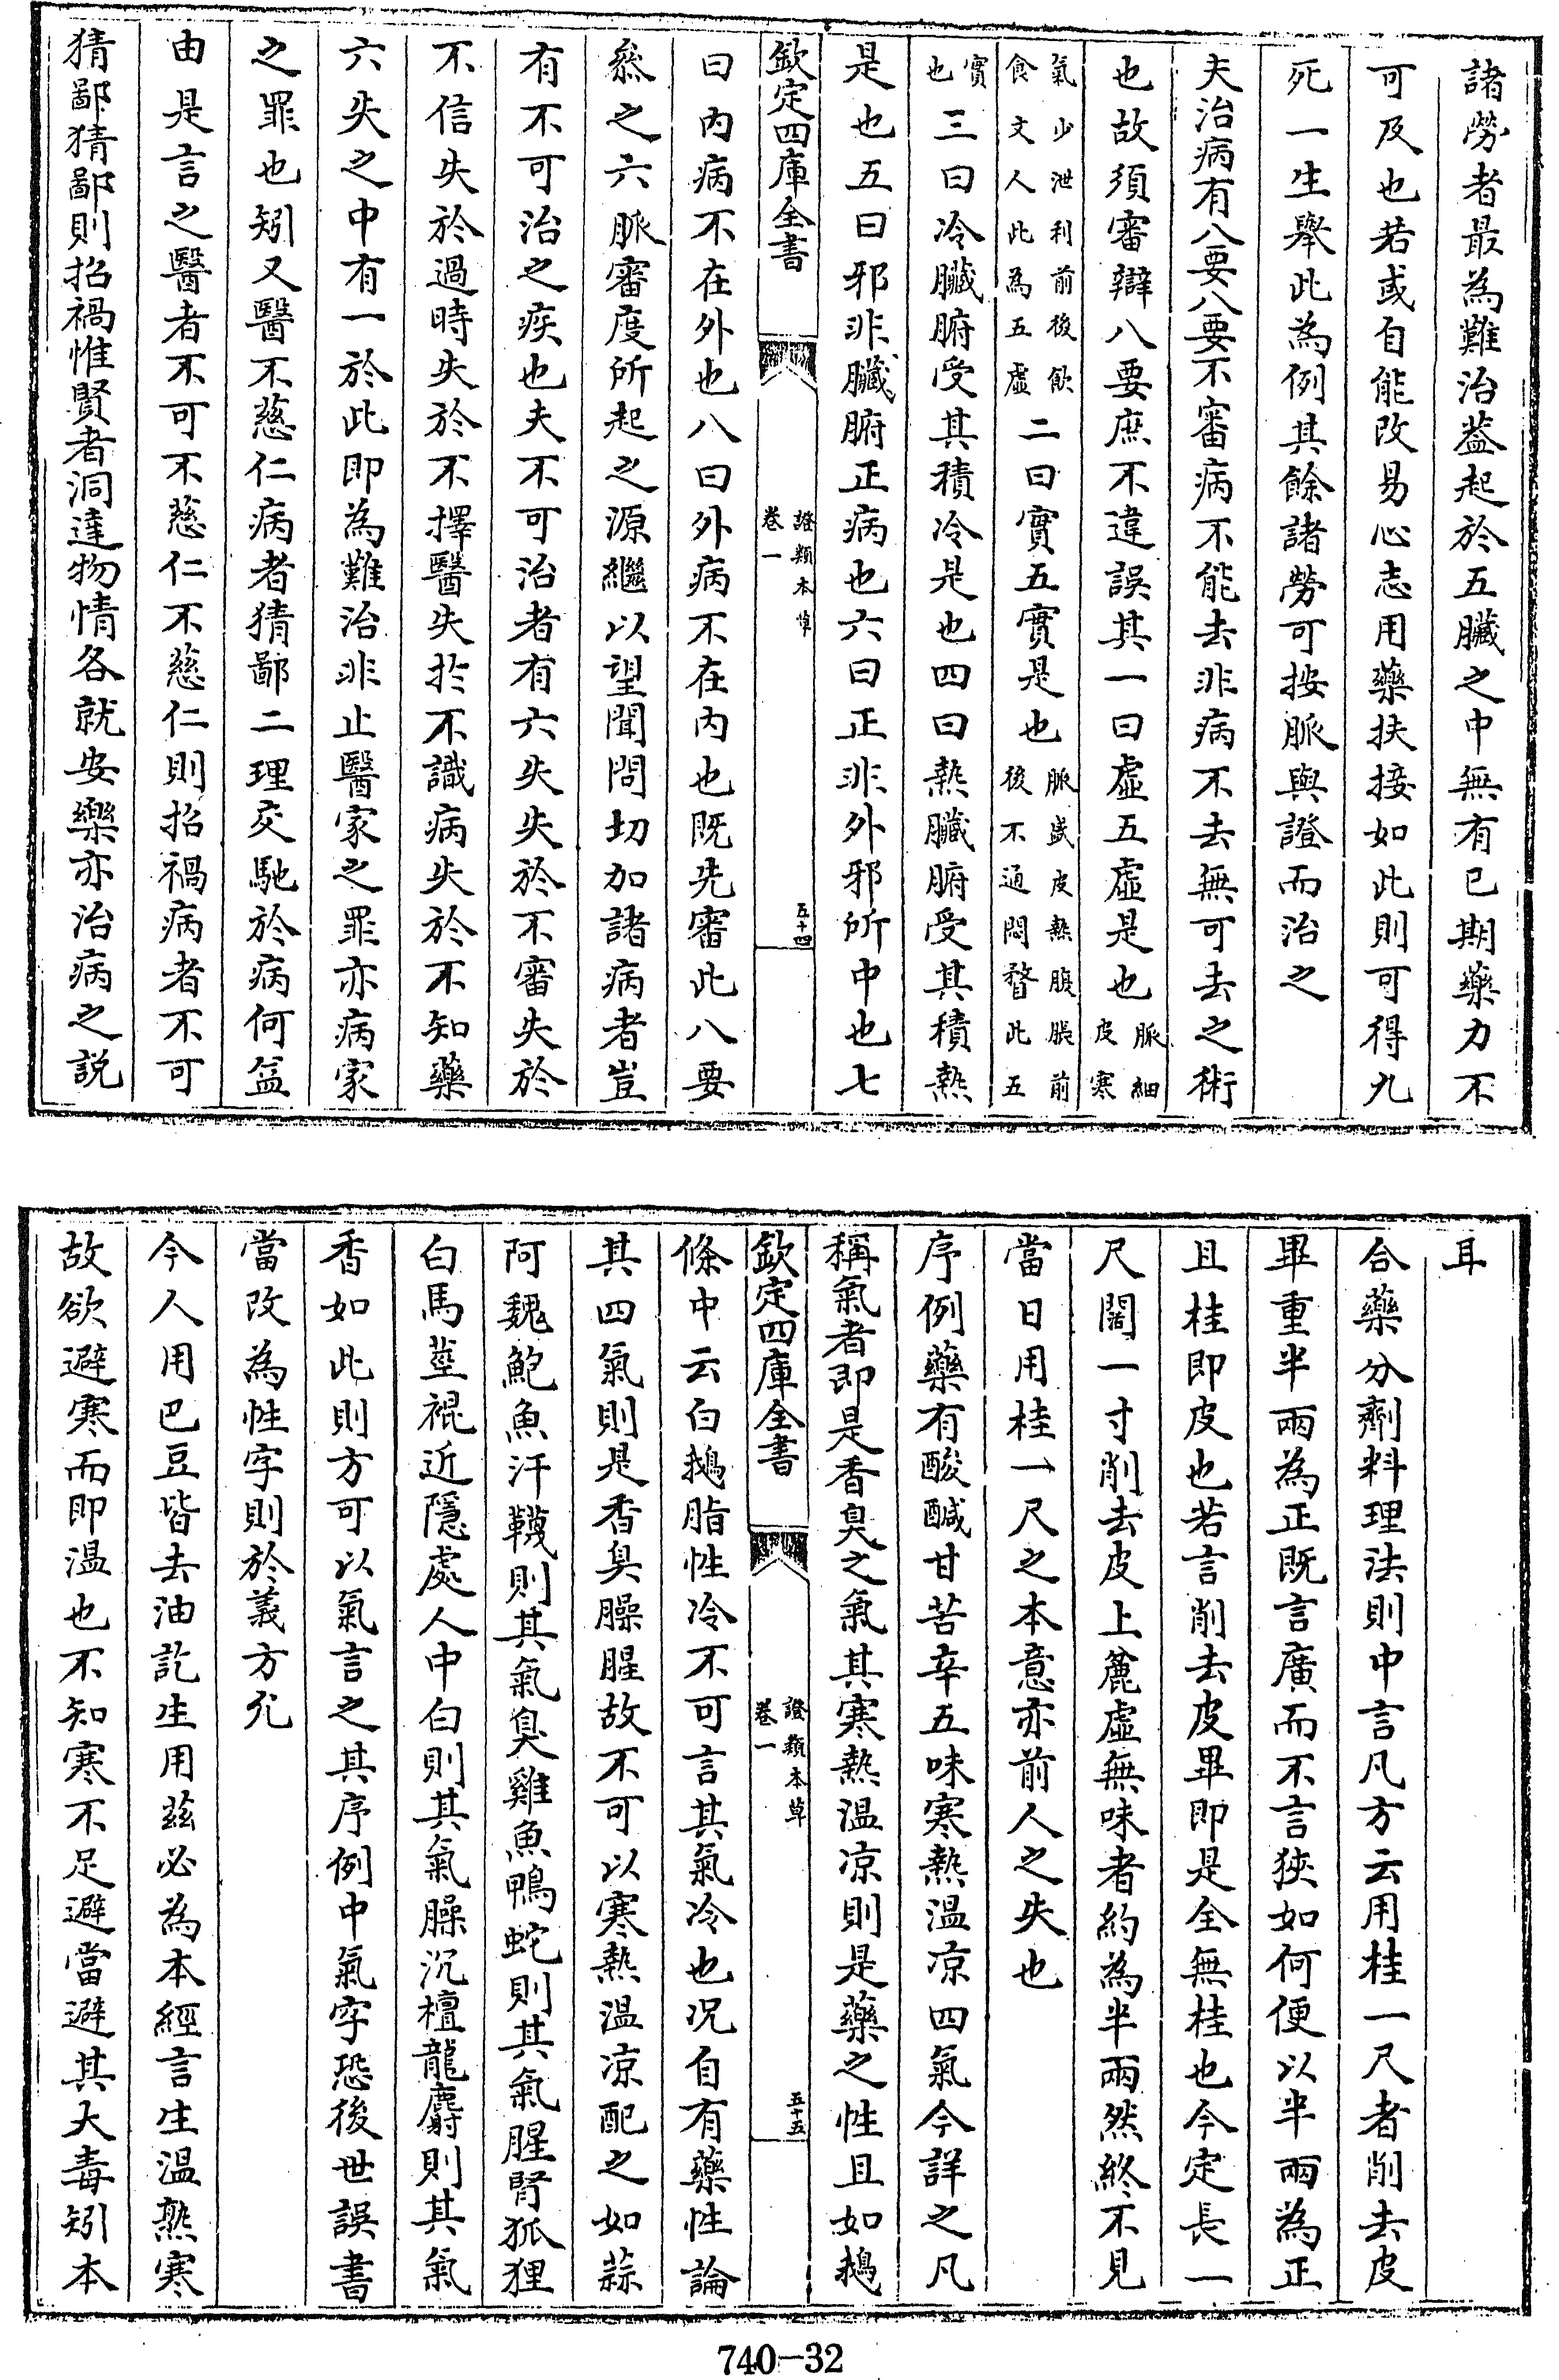 諸勞者最為難治葢起於五臟之中無有已期藥力不
可及也若或自能改易心志用藥扶接如此則可得九
死一生舉此為例其餘諸勞可按脈與證而治之
夫治病有八要八要不審病不能去非病不去無可去之術
也故須審辯八要庶不違誤其一曰虛五虛是也脈細皮寒
氣少泄利前後飲食文人此為五虛二曰實五實是也脈盛皮熱腹脹前後不通悶瞀此五
實也三曰冷臟腑受其積冷是也四曰熱臟腑受其積熱
是也五曰邪非臟腑正病也六曰正非外邪所中也七
欽定四庫全書
證類本草
卷一
五十四
曰內病不在外也八曰外病不在內也既先審此八要
叅之六脈審度所起之源繼以望聞問切加諸病者豈
有不可治之疾也夫不可治者有六失失於不審失於
不信失於過時失於不擇醫失於不識病失於不知藥
六失之中有一於此即為難治非止醫家之罪亦病家
之罪也矧又醫不慈仁病者猜鄙二理交馳於病何益
由是言之醫者不可不慈仁不慈仁則招禍病者不可
猜鄙猜鄙則招禍惟賢者洞達物情各就安樂亦治病之說
耳
合藥分劑料理法則中言凡方云用桂一尺者削去皮
畢重半兩為正既言廣而不言狹如何便以半兩為正
且桂即皮也若言削去皮畢即是全無桂也今定長一
尺闊一寸削去皮上麄虛無味者約為半兩然終不見
當日用桂一尺之本意亦前人之失也
序例藥有酸鹹甘苦辛五味寒熱溫凉四氣今詳之凡
稱氣者即是香臭之氣其寒熱溫凉則是藥之性且如鵝
欽定四庫全書
證類本草
卷一
五十五
條中云白鵝脂性冷不可言其氣冷也况自有藥性論
其四氣則是香臭臊腥故不可以寒熱溫凉配之如蒜
阿魏鮑魚汗韈則其氣臭雞魚鴨蛇則其氣腥腎狐狸
白馬莖裩近隱處人中白則其氣臊沉檀龍麝則其氣
香如此則方可以氣言之其序例中氣字恐後世誤書
當改為性字則於義方允
今人用巴豆皆去油訖生用茲必為本經言生溫熟寒
故欲避寒而即溫也不知寒不足避當避其大毒矧本
740-32